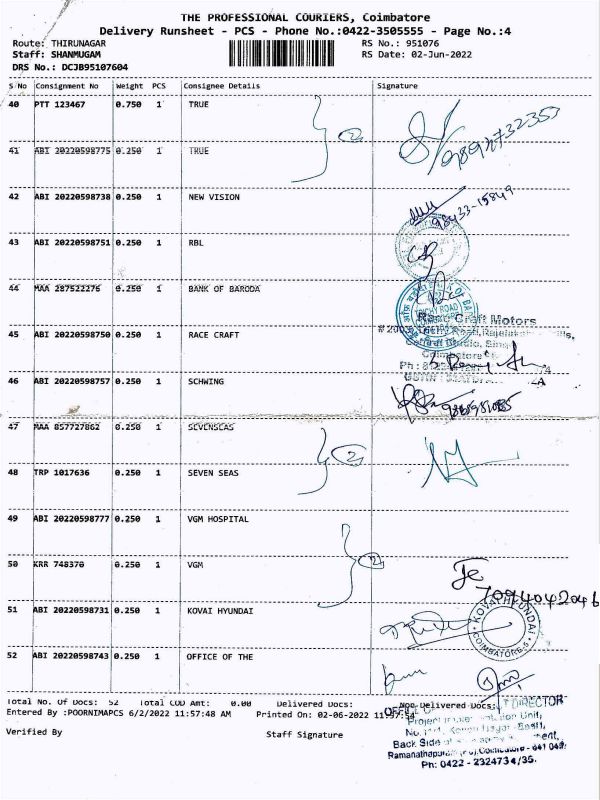 THE PROFESSIONAL COURIERS, Coimbatore
Delivery Runsheet - PCS - Phone No.:0422-3505555 - Page No.:4
Route: THIRUNAGAR RS No.: 951076
Staff: SHANMUGAM RS Date: 02-Jun-2022
DRS No.: DCJB95107604
S No Consignment No Weight PCS Consignee Details Signature
40 PTT 123467 0.750 1 TRUE
2
41 ABI 20220598775 0.250 1 TRUE
42 ABI 20220598738 0.250 1 NEW VISION
98433-15849
43 ABI 20220598751 0.250 1 RBL
44 MAA 287522276 0.250 1 BANK OF BARODA
Craft Motors
45 ABI 20220598750 0.250 1 RACE CRAFT
Coimbatore
46 ABI 20220598757 0.250 1 SCHWING
47 MAA 857727862 0.250 1 SEVENSEAS
2
48 TRP 1017636 0.250 1 SEVEN SEAS
49 ABI 20220598777 0.250 1 VGM HOSPITAL
50 KRR 748370 0.250 1 VGM
2
7094042046
51 ABI 20220598731 0.250 1 KOVAI HYUNDAI
KOVAI HYUNDAI
COIMBATORE-5
52 ABI 20220598743 0.250 1 OFFICE OF THE
Total No. Of Docs: 52 Total COD Amt: 0.00 Delivered Docs: Non Delivered Docs:
DIRECTOR
Entered By :POORNIMAPCS 6/2/2022 11:57:48 AM Printed On: 02-06-2022 11:57:54
Unit,
Verified By Staff Signature
Back Side
Ph: 0422 - 2324734/35.